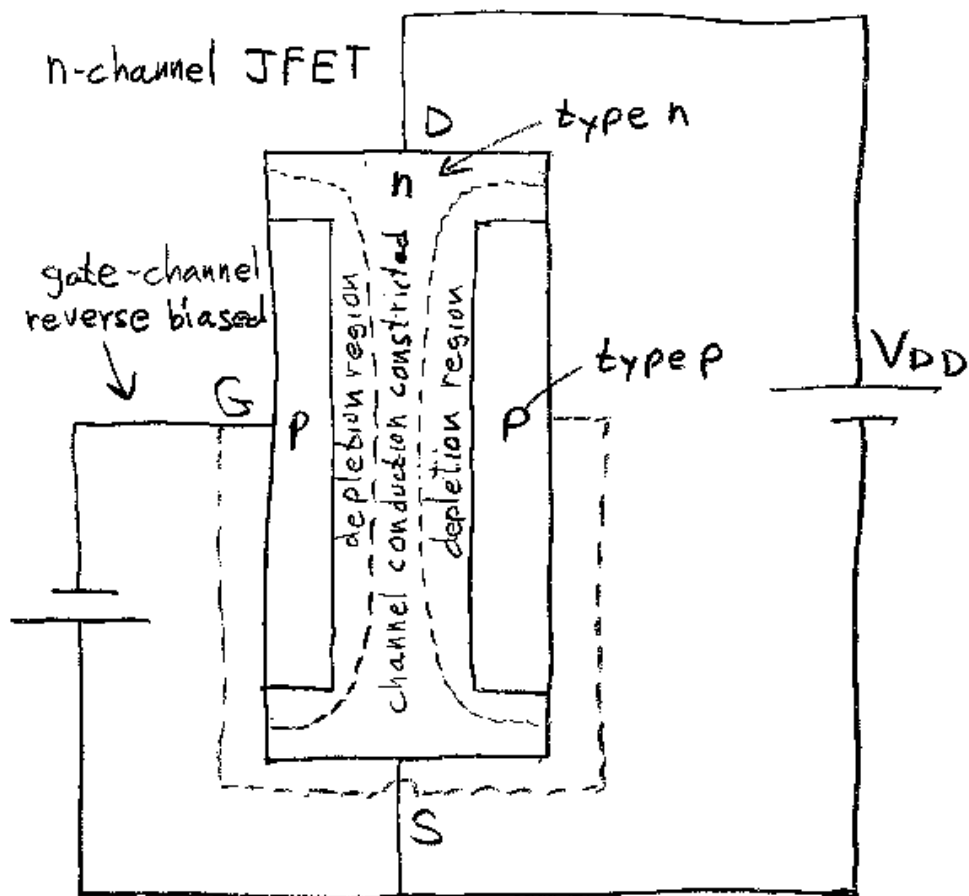 n-channel JFET
D
type n
n
gate-channel
reverse biased
G
p
depletion region
channel conduction constricted
depletion region
p
type p
VDD
S